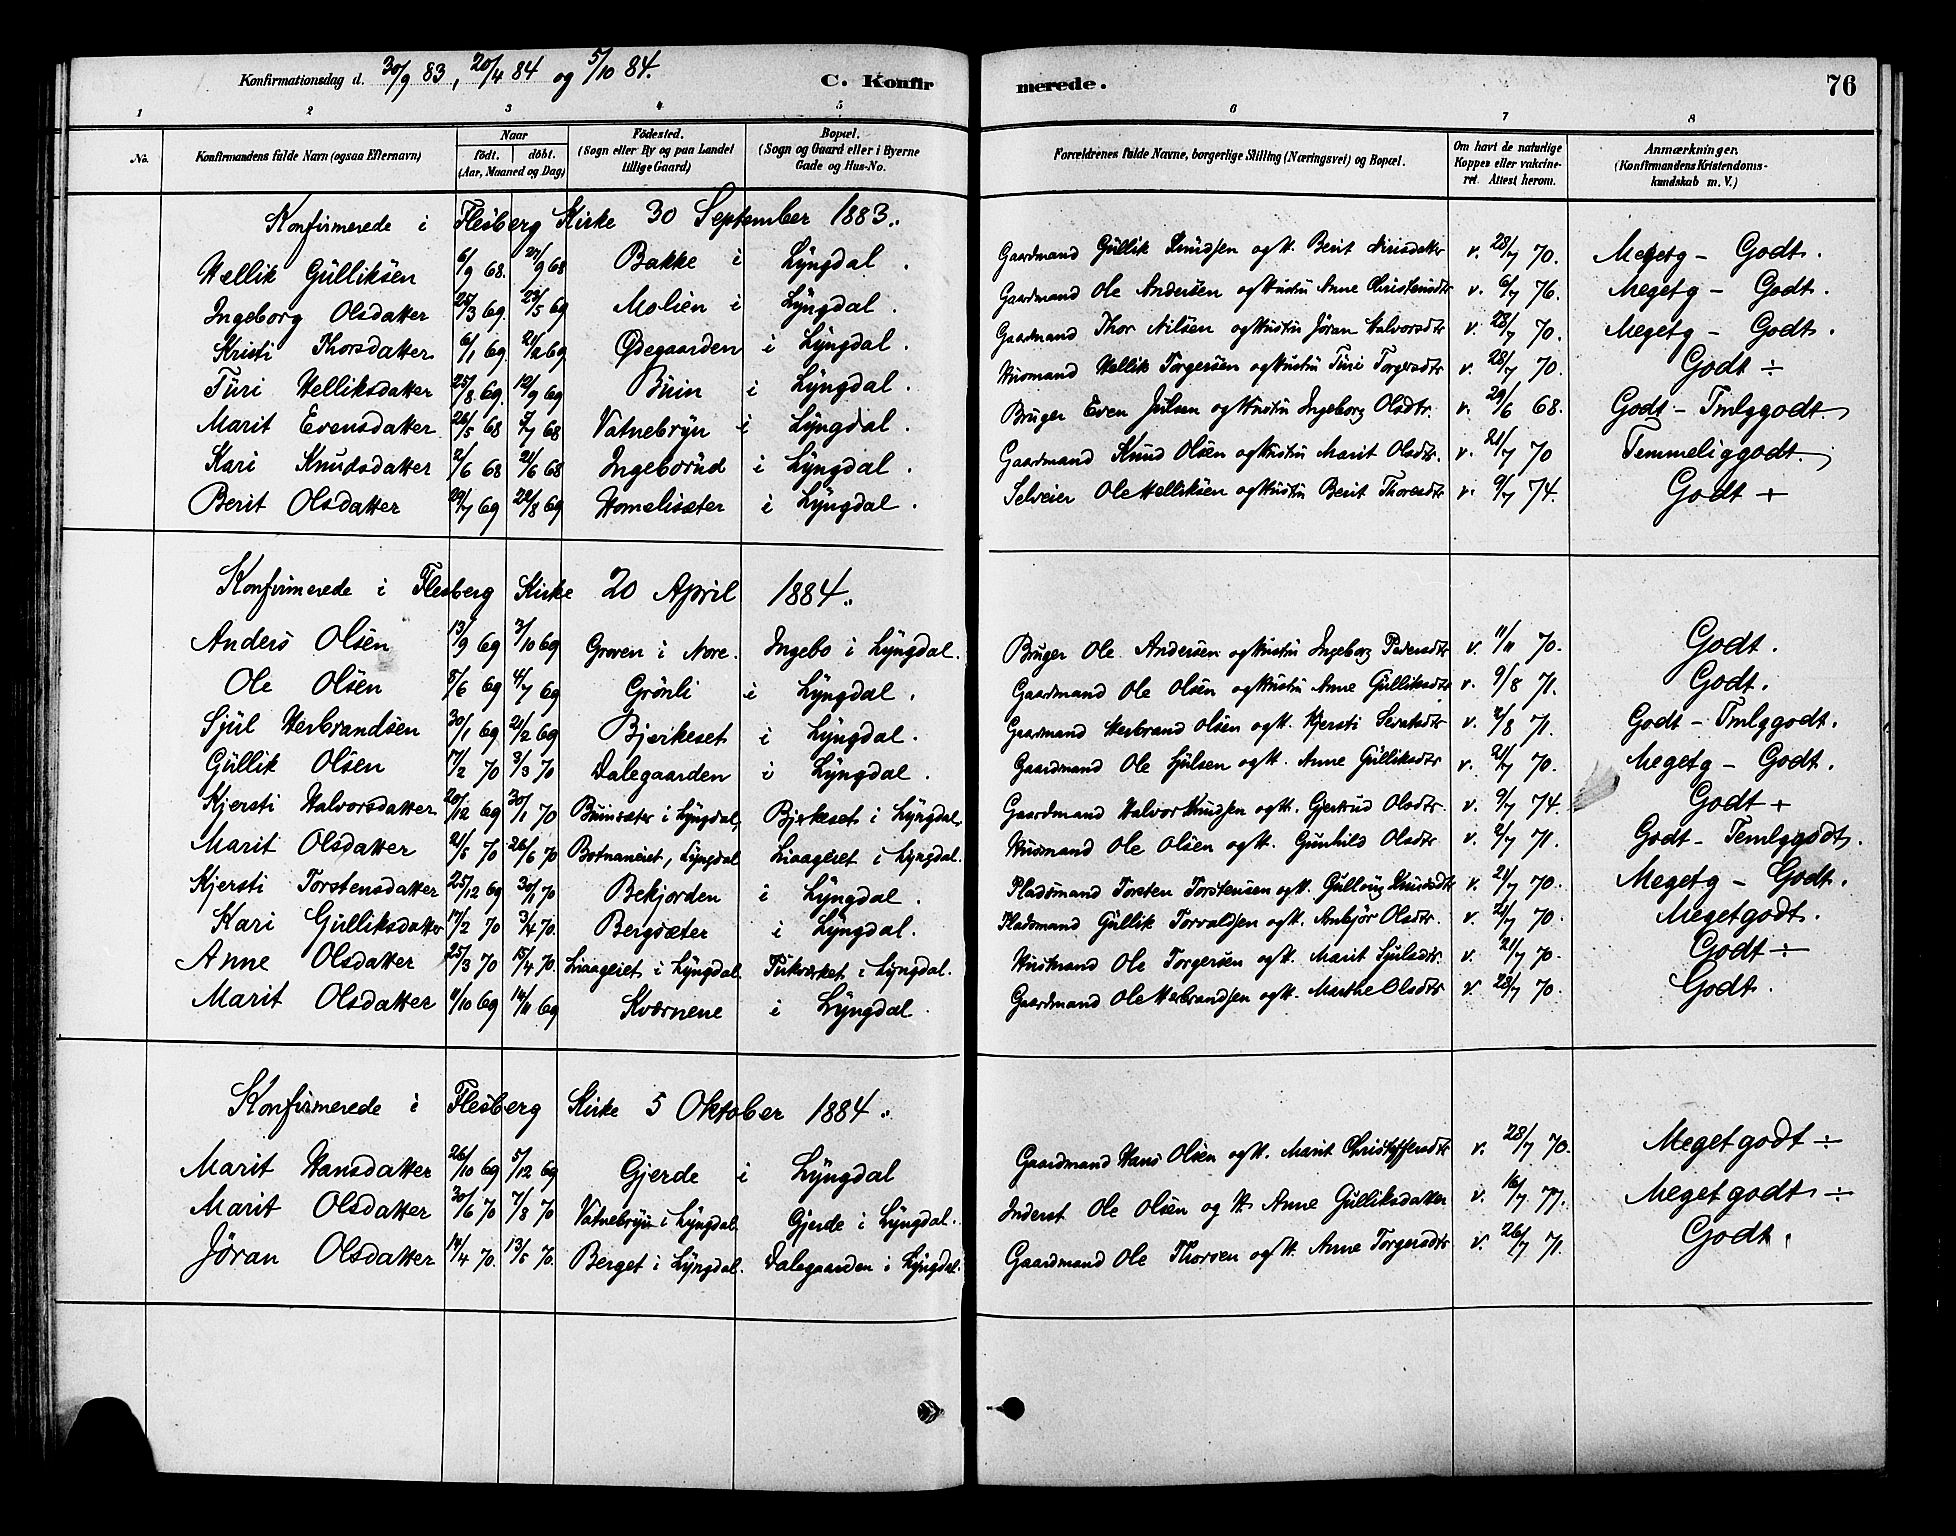 Konfirmationsdag d. 30/9 83, 20/4 84 og 5/10 84. C. Konfirmerede. 76
1 2 3 4 5 6 7 8
No. Konfirmandens fulde Navn (ogsaa Efternavn) Naar födt. döbt. (Aar, Maaned og Dag) Födested. (Sogn eller By og paa Landet tillige Gaard) Bopæl. (Sogn og Gaard eller i Byerne Gade og Hus-No. Forældrenes fulde Navne, borgerlige Stilling (Næringsvei) og Bopæl. Om havt de naturlige Kopper eller vakcineret. Attest herom. Anmærkninger. (Konfirmandens Kristendomskundskab m. V.)
Konfirmerede i Flesberg Kirke 30 September 1883.
Hellik Gülliksen 6/9 68. 27/9 68 Bakke i Lÿngdal. Gaardmand Güllik Knudsen og H. Berit v. 28/7 70. Megetg – Godt.
Ingeborg Olsdatter 25/3 69 23/5 69 Molien i Lÿngdal. Gaardmand Ole Andersen og Hustru Anne Christensdtr v. 6/7 76. Megetg – Godt.
Kristi Thorsdatter 6/1 69 21/2 69 Ødegaarden i Lÿngdal. Gaardmand Thor Nilsen og Hustru Jöran Halvorsdtr v. 28/7 70. Megetg – Godt.
Türi Helliksdatter 25/8 69. 12/9 69 Büin i Lÿngdal. Husmand Hellik Torgersen og Hustru Türi Torgersdtr v. 28/7 70. Godt ÷
Marit Evensdatter 26/5 68 /7 68 Vatnebrÿn i Lÿngdal. Bruger Even Julsen og Hustru Ingeborg Olsdtr. v. 29/6 68. Godt – Tmlggodt.
Kari Knudsdatter 2/6 68 21/6 68 Ingeborüd i Lÿngdal. Gaardmand Knud Olsen og Hustru Marit Olsdtr. v. 21/7 70 Temmeliggodt.
Berit Olsdatter 29/7 69 22/8 69 Homelisæter i Lÿngdal. Selveier Ole Helliksen og Hustru Berit Thoresdtr v. 9/7 74. Godt +
Konfirmerede i Flesberg Kirke 20 April 1884.
Anders Olsen 13/9 69 3/10 69 Groven i Nore. Ingebo i Lÿngdal. Bruger Ole Andersen og Hustru Ingeborg Pedersdtr v. 11/11 70. Godt.
Ole Olsen 8/6 69 4/7 69 Grönli i Lÿngdal. Gaardmand Ole Olsen og Hustru Anne Gülliksdtr v. 9/8 71. Godt.
Sjül Herbrandsen 30/1 69 21/2 69 Bjerkeset i Lÿngdal. Gaardmand Herbrand Olsen og H. Kjersti v. 2/8 71. Godt – Tmlggodt.
Güllik Olsen 17/2 70 3/3 70 Dalegaarden i Lÿngdal. Gaardmand Ole Sjülsen og H. Anne Gülliksdtr v. 21/7 70. Megetg – Godt.
Kjersti Halvorsdatter 20/12 69 30/1 70 Büinsæter i Lÿngdal, Bjerkeset i Lÿngdal. Gaardmand Halvor Knudsen og H. Gjertrud Olsdtr. v. 9/7 74. Godt +
Marit Olsdatter 21/5 70 26/6 70 Botnaneiet, Lÿngdal Liaageiet i Lÿngdal. Husmand Ole Olsen og H. Gunhild Olsdtr v. 2/7 71. Godt – Temlggodt.
Kjersti Torstensdatter 25/12 69 30/1 70 Bekjorden i Lÿngdal. Pladsmand Torsten Torstensen og H. Gullaug Knudsdtr v. 21/7 70. Megetg – Godt.
Kari Gulliksdatter 17/2 70 3/4 70. Bergsæter i Lÿngdal. Pladsmand Güllik Torvaldsen og H. Anbjör Olsdtr. v. 21/7 70. Megetgodt.
Anne Olsdatter 25/3 70 15/4 70. Liaageiet i Lÿngdal Tükværket i Lÿngdal. Husmand Ole Torgersen og H. Marit Sjulsdtr. v. 21/7 70. Godt ÷
Marit Olsdatter 11/10 69 14/11 69 Kværnene i Lÿngdal. Gaardmand Ole Herbrandsen og H. Marthe Olsdtr v. 28/7 70. Godt.
Konfirmerede i Flesberg Kirke 5 Oktober 1884.
Marit Hansdatter 26/10 69 5/12 69 Gjerde i Lÿngdal Gaardmand Hans Olsen og H. Marit Christoffersdtr v. 28/7 70. Megetgodt ÷
Marit Olsdatter 30/6 70 7/8 70 Vatnebrÿn i Lÿngdal Gjerde i Lÿngdal. Inderst Ole Olsen og H Anne Gülliksdatter v. 16/7 77. Megetgodt ÷
Jöran Olsdatter 14/4 70. 13/5 70. Berget i Lÿngdal. Dalegaarden i Lÿngdal. Gaardmand Ole Thorsen og H. Anne Torgersdtr v. 26/7 71. Godt.